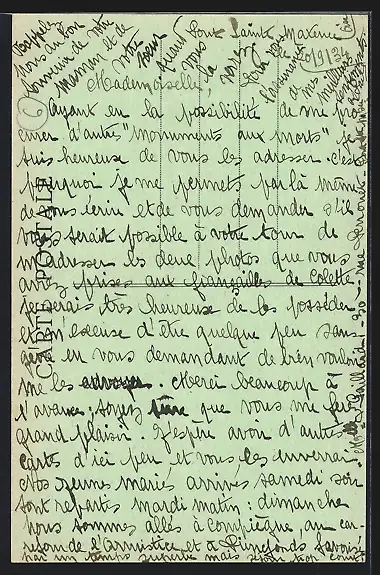 Pont Sainte Maxence
20/9/34
Mademoiselle,
Ayant eu la possibilité de me pro
curer d'autres "monuments aux morts" je
suis heureuse de vous les adresser c'est
pourquoi je me permets par là même
de vous écrire et de vous demander s'il
vous serait possible à votre tour de
m'adresser les deux photos que vous
avez prises aux fiançailles de Colette
je serais très heureuse de les posséder
et m'excuse d'être quelque peu san
gêne en vous demandant de bien vouloir
me les envoyer. Merci beaucoup à
l'avance; soyez sûre que vous me ferez
grand plaisir. J'espère avoir d'autres
cartes d'ici peu et vous les enverrai
Nos jeunes mariés arrivés samedi soir
sont repartis mardi matin: dimanche
nous sommes allés à Compiègne, au car
refour de l'Armistice et à Pierrefonds
par un temps superbe mais séjour trop court
Rappelez
vous au bon
souvenir de votre
maman et de
votre sœur
quand vous
la
CARTE POSTALE